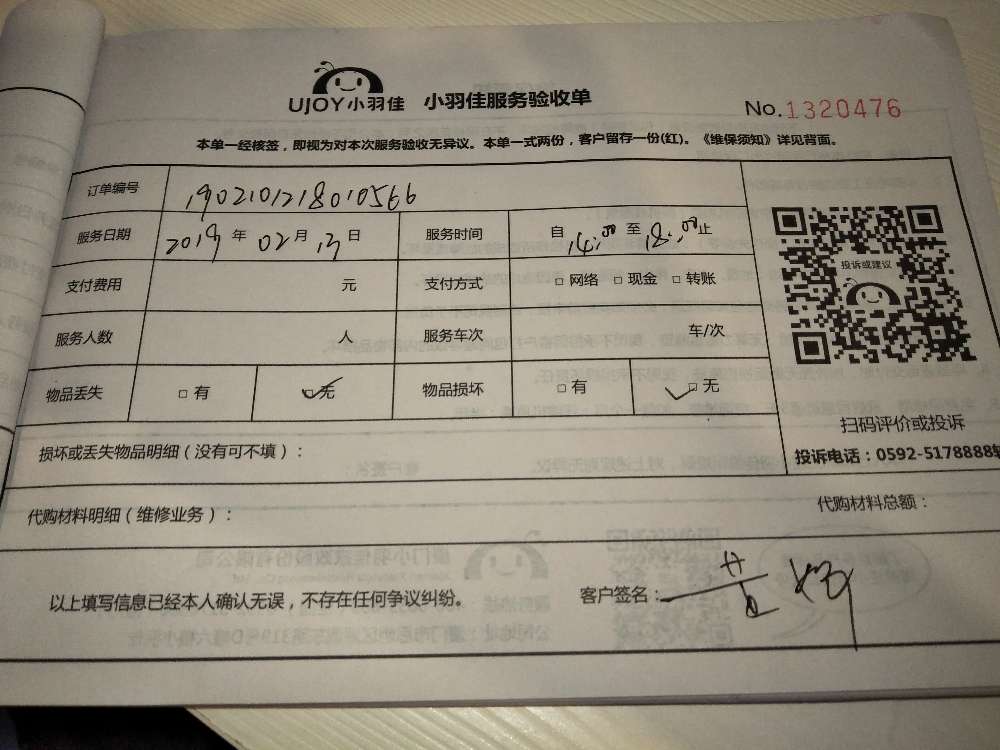 UJOY小羽佳 小羽佳服务验收单 No.1320476
本单一经核签，即视为对本次服务验收无异议。本单一式两份，客户留存一份(红)。《维保须知》详见背面。
订单编号 1902101218010566
服务日期 2019年02月13日 服务时间 自14:00至18:00止
支付费用 元 支付方式 □网络 □现金 □转账
服务人数 人 服务车次 车/次
物品丢失 □有 ☑无 物品损坏 □有 ☑无
投诉或建议
扫码评价或投诉
投诉电话：0592-5178888转
损坏或丢失物品明细（没有可不填）：
代购材料明细（维修业务）： 代购材料总额：
以上填写信息已经本人确认无误，不存在任何争议纠纷。 客户签名：